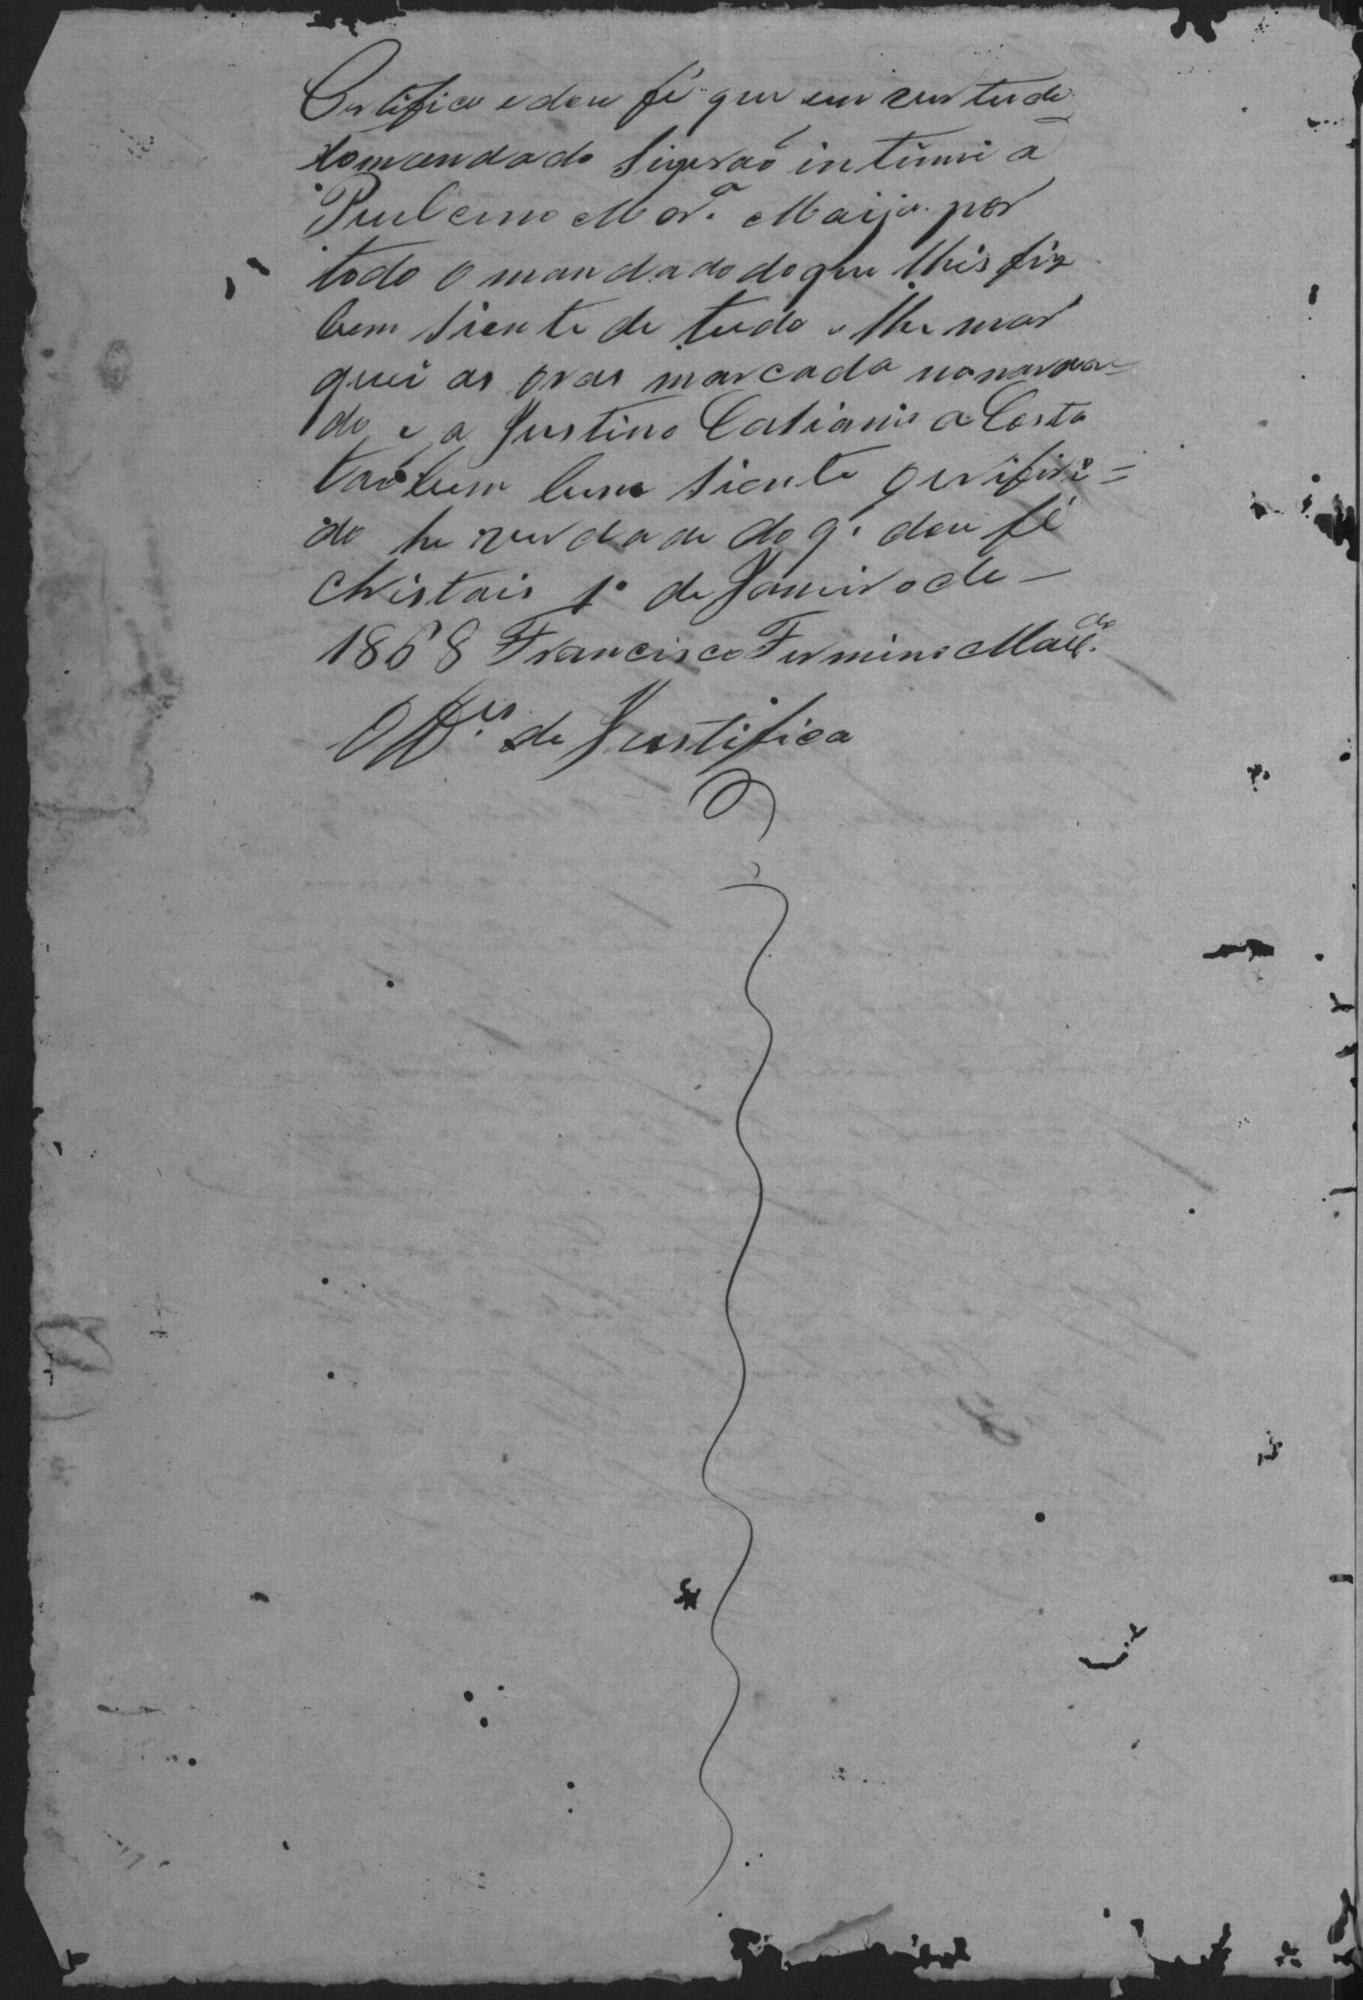 Certifico e dou fé que em vertude
do mandado Supra intimei a
Mor.ª Maija por
todo o mandado do que lhis fiz
bem siente de tudo e lhe mar
quei as oras marcada no manda=
do, e a Justino Catianio a Costa
taobem bem siente o rifiri=
do he verdade do q. dou fé
Christais 1º de Janeiro de —
1868 Francisco Fermino Mac.do
Off.es de Justifica